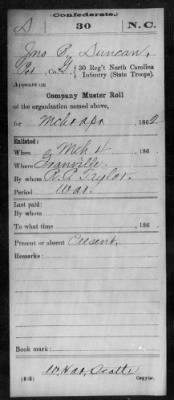 Confederate.
D 30 N.C.
Jno. P. Duncan,
Pvt, Co. G, 30 Reg't North Carolina
Infantry (State Troops).
Appears on
Company Muster Roll
of the organization named above,
for Mch & Apr, 1862.
Enlisted:
When Mch 4, 186
Where Granville
By whom R. P. Taylor.
Period War.
Last paid:
By whom
To what time , 186 .
Present or absent Present.
Remarks:
Book mark:
(642) Copyist.